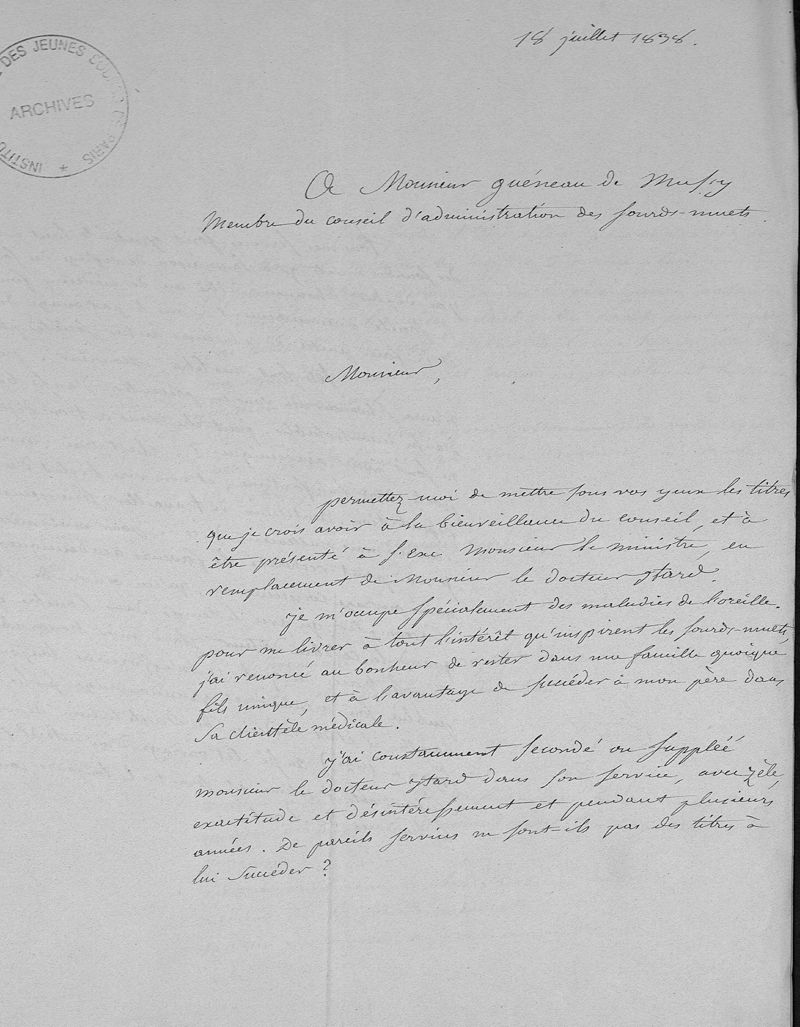 18 juillet 1838.
DES JEUNES SOURDS DE PARIS
ARCHIVES
INSTITU
A Monsieur guéneau de Mussy
Membre du conseil d'administration des sourds-muets
Monsieur,
permettez-moi de mettre sous vos yeux les titres
que je crois avoir à la bienveillance du conseil, et à
être présenté à S. Exc. Monsieur le ministre, en
remplacement de Monsieur le docteur jtard.
je m'occupe spécialement des maladies de l'oreille.
pour me livrer à tout l'intérêt qu'inspirent les sourds-muets,
j'ai renoncé au bonheur de rester dans ma famille quoique
fils unique, et à l'avantage de succéder à mon père dans
sa clientèle médicale.
j'ai constamment secondé ou suppléé
monsieur le docteur jtard dans son service, avec zèle,
exactitude et désintéressement et pendant plusieurs
années. De pareils services ne sont-ils pas des titres à
lui succéder ?